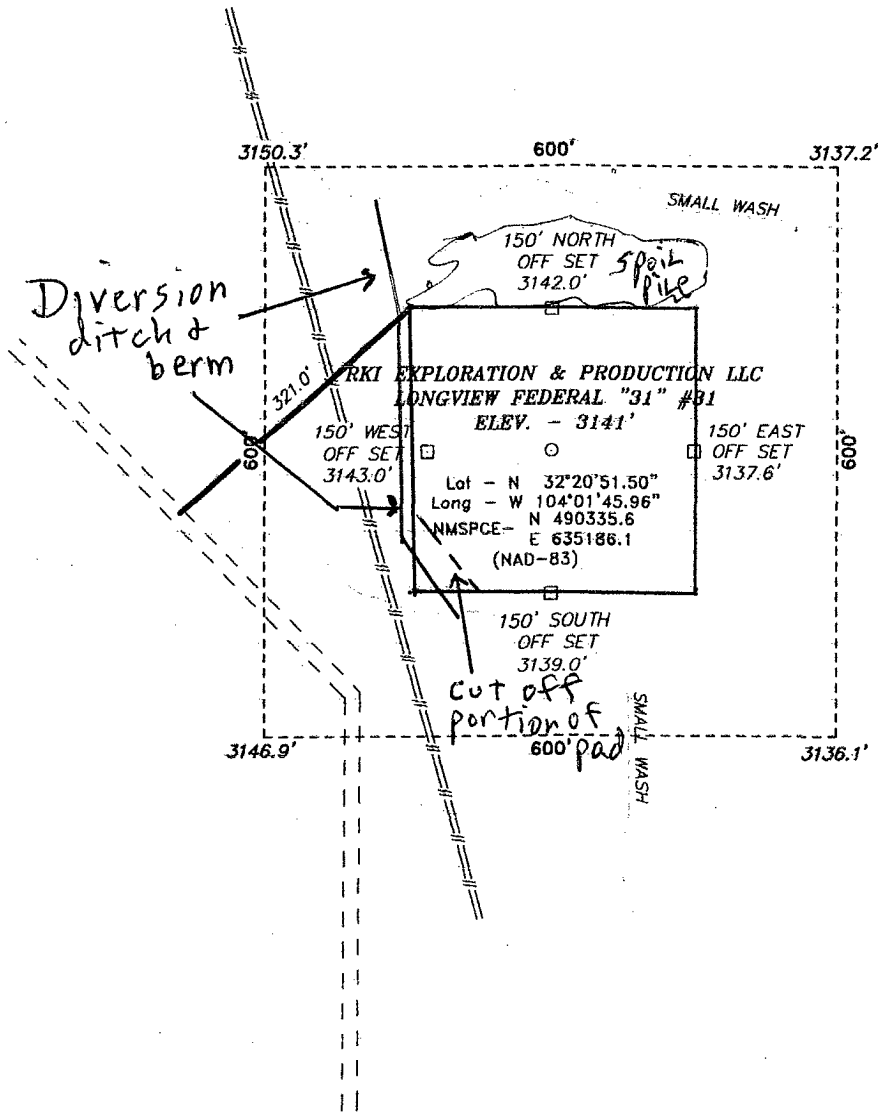 3150.3'
600'
3137.2'
SMALL WASH
150' NORTH
OFF SET
3142.0'
spoil
pile
Diversion
ditch &
berm
321.0'
RKI EXPLORATION & PRODUCTION LLC
LONGVIEW FEDERAL "31" #31
ELEV. - 3141'
600'
150' WEST
OFF SET
3143.0'
150' EAST
OFF SET
3137.6'
600'
Lat - N 32°20'51.50"
Long - W 104°01'45.96"
NMSPCE- N 490335.6
E 635186.1
(NAD-83)
150' SOUTH
OFF SET
3139.0'
cut off
portion of
pad
SMALL WASH
3146.9'
600'
3136.1'